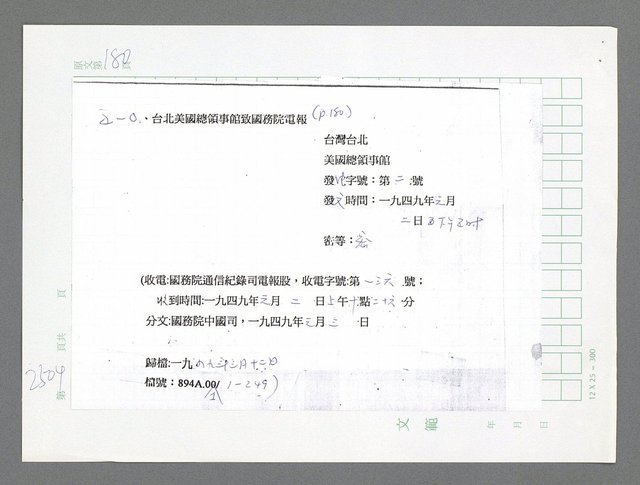 原文第180頁
五一〇、台北美國總領事館致國務院電報 (p.180)
台灣台北
美國總領事館
發電字號：第二號
發文時間：一九四九年元月
二日下午
密等：密
(收電:國務院通信紀錄司電報股，收電字號:第一三六號；
收到時間:一九四九年元月二日上午十點二十六分
分文:國務院中國司，一九四九年元月三日
歸檔:一九四九年三月十二日
檔號：894A.00/1-249)
2504
第 頁共 頁
12 X 25 - 300
文範
年 月 日